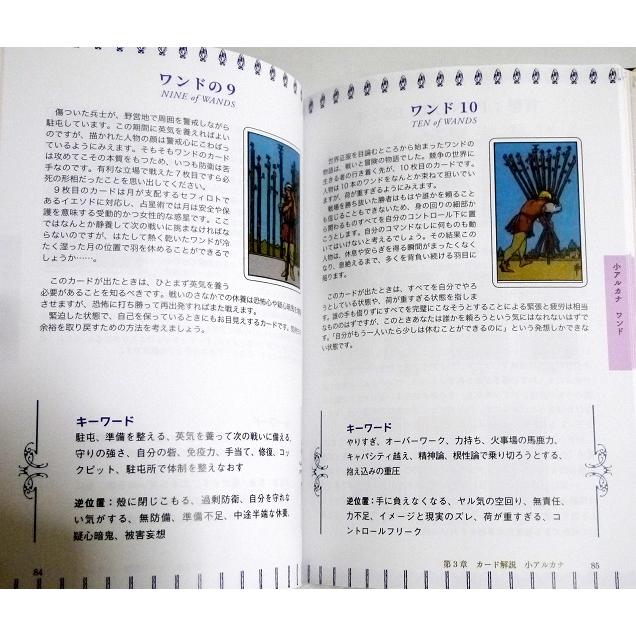 ワンドの9
NINE of WANDS
傷ついた兵士が、野営地で周囲を警戒しながら
駐屯しています。この期間に英気を養えればよい
のですが、描かれた人物の顔は警戒心にこわばっ
ているようにみえます。そもそもワンドのカード
は攻めてこその本質をもつため、いつも防衛は苦
手なのです。有利な立場で戦えた7枚目ですら必
死の形相だったことを思い出してください。
9枚目のカードは月が支配するセフィロトで
あるイエソドに対応し、占星術では月は安全や保
護を意味する受動的かつ女性的な惑星です。ここ
ではなんとか静養して次の戦いに挑まなければな
らないのですが、はたして熱く乾いたワンドが冷
たく湿った月の位置で羽を休めることができるで
しょうか……。
このカードが出たときは、ひとまず英気を養う
必要があることを知るべきです。戦いのさなかでの休養は恐怖心や疑心
させますが、恐怖に打ち勝って再出発すればまた戦えます。
緊迫した状態で、自己を保っているときにもお目見えするカードです。
余裕を取り戻すための方法を考えましょう。
キーワード
駐屯、準備を整える、英気を養って次の戦いに備える、
守りの強さ、自分の砦、免疫力、手当て、修復、コッ
クピット、駐屯所で体制を整えなおす
逆位置:殻に閉じこもる、過剰防衛、自分を守れな
い気がする、無防備、準備不足、中途半端な休養、
疑心暗鬼、被害妄想
84
ワンド10
TEN of WANDS
世界征服を目論むところから始まったワンドの
物語は、戦いと冒険の物語でした。競争の世界に
生きる者の行き着く先が、10枚目のカードです。
人物は10本のワンドをなんとか束ねて担いでい
ますが、荷が重すぎるようにみえます。
戦場を勝ち抜いた勝者はもはや誰かを頼ること
も信じることもできないため、身の回りの細部か
ら関わるものすべてを自分のコントロール下に置
こうとします。自分のコマンドなしに何ものも動
いてはいけないと考えるでしょう。その結果この
人物は、休息や安らぎを得る瞬間がまったくなく
なり、息絶えるまで、多くを背負い続ける羽目に
陥ります。
このカードが出たときは、すべてを自分でやろ
うとしている状態、荷が重すぎる状態を指しま
す。誰の手も借りずにすべてを完璧にこなそうとすることによる緊張と疲労は相当
なもののはずですが、このときあなたは誰かを頼ろうという気にはなれないはずで
す。「自分がもう一人いたら少しは休むことができるのに」という発想しかできな
い状態です。
キーワード
やりすぎ、オーバーワーク、力持ち、火事場の馬鹿力、
キャパシティ越え、精神論、根性論で乗り切ろうとする、
抱え込みの重圧
逆位置:手に負えなくなる、ヤル気の空回り、無責任、
力不足、イメージと現実のズレ、荷が重すぎる、コ
ントロールフリーク
小アルカナ ワンド
第3章 カード解説 小アルカナ 85